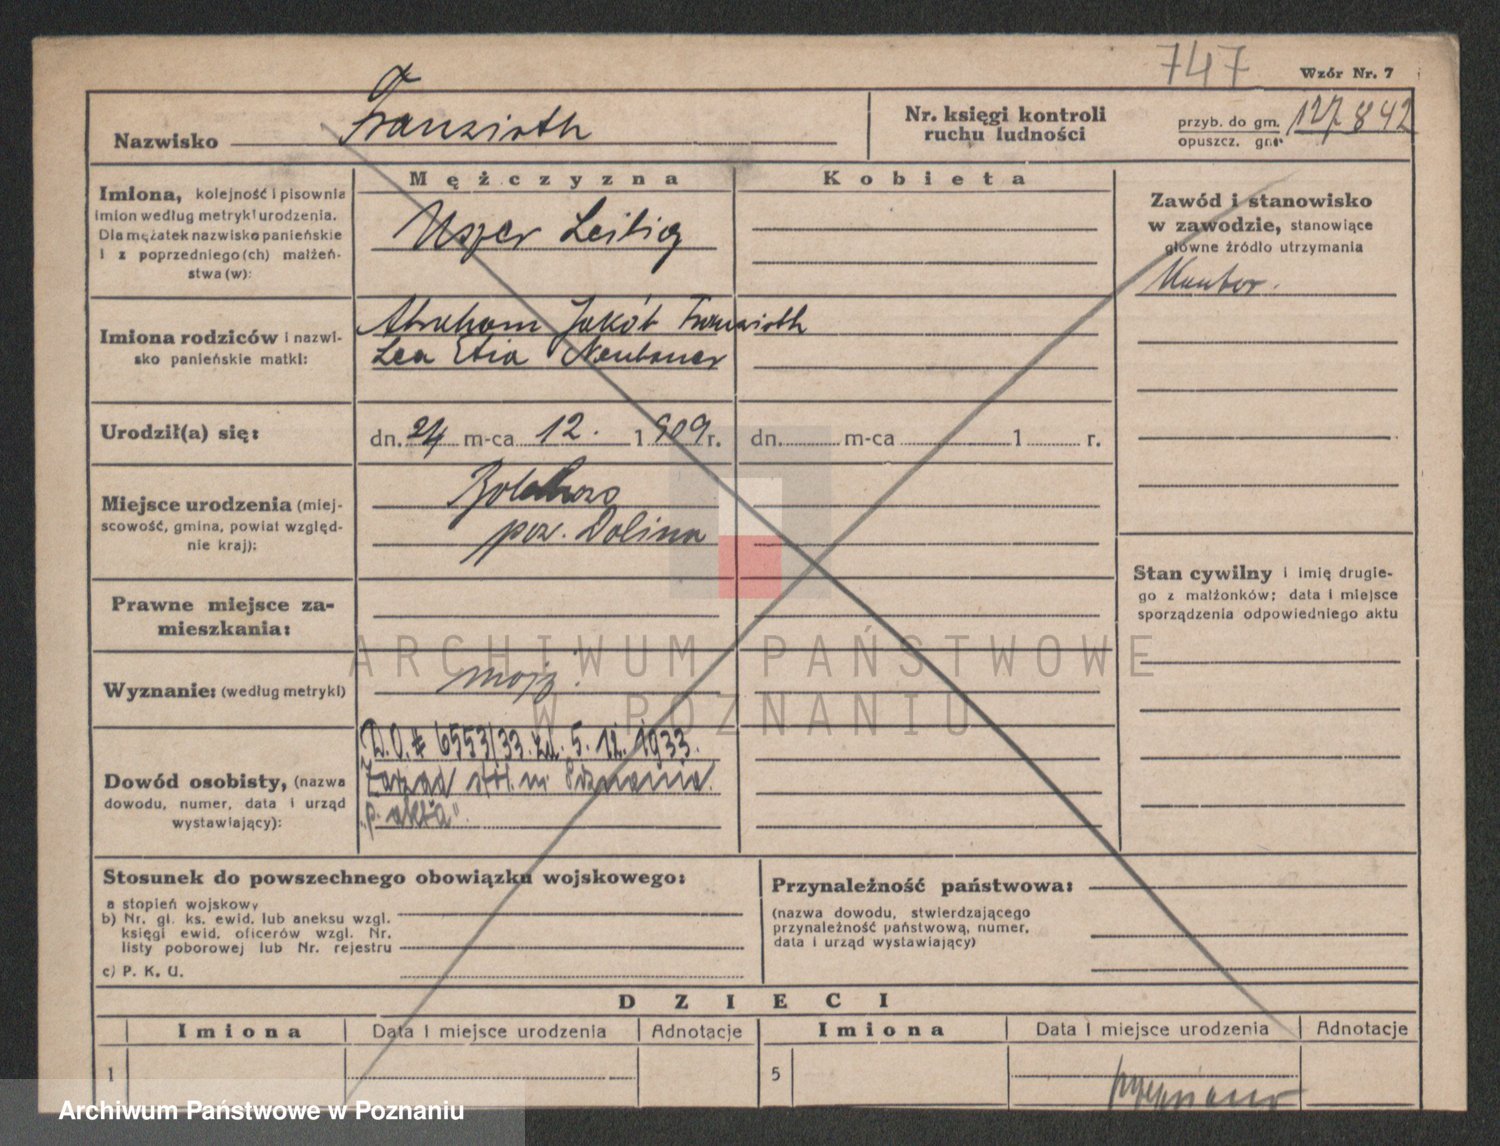 747
Wzór Nr. 7
Nazwisko Franzioth
Nr. księgi kontroli
ruchu ludności
przyb. do gm. 127842
opuszcz. gm.
Mężczyzna
Kobieta
Imiona, kolejność i pisownia
imion według metryki urodzenia.
Dla mężatek nazwisko panieńskie
i z poprzedniego(ch) małżeń-
stwa(w):
Uszer Leibig
Zawód i stanowisko
w zawodzie, stanowiące
główne źródło utrzymania
Kantor.
Imiona rodziców i nazwi-
sko panieńskie matki:
Abraham Jakób Franzioth
Lea Etia Neubauer
Urodził(a) się:
dn. 24 m-ca 12. 1909 r.
dn. m-ca 1 r.
Miejsce urodzenia (miej-
scowość, gmina, powiat względ-
nie kraj):
pow. Dolina
Stan cywilny i imię drugie-
go z małżonków; data i miejsce
sporządzenia odpowiedniego aktu
Prawne miejsce za-
mieszkania:
Wyznanie: (według metryki)
mojż.
Dowód osobisty, (nazwa
dowodu, numer, data i urząd
wystawiający):
D.O. # 6553/33. z d. 5. 12. 1933.
Zarząd stół. m. Poznania.
"p. akta".
Stosunek do powszechnego obowiązku wojskowego:
a stopień wojskowy
b) Nr. gł. ks. ewid. lub aneksu wzgl.
księgi ewid. oficerów wzgl. Nr.
listy poborowej lub Nr. rejestru
c) P. K. U.
Przynależność państwowa:
(nazwa dowodu, stwierdzającego
przynależność państwową, numer,
data i urząd wystawiający)
DZIECI
Imiona Data i miejsce urodzenia Adnotacje
Imiona Data i miejsce urodzenia Adnotacje
1
5
ARCHIWUM PAŃSTWOWE
W POZNANIU
Archiwum Państwowe w Poznaniu